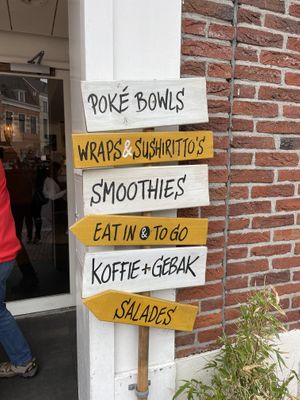 POKÉ BOWLS
WRAPS & SUSHIRITTO'S
SMOOTHIES
EAT IN & TO GO
KOFFIE + GEBAK
SALADES